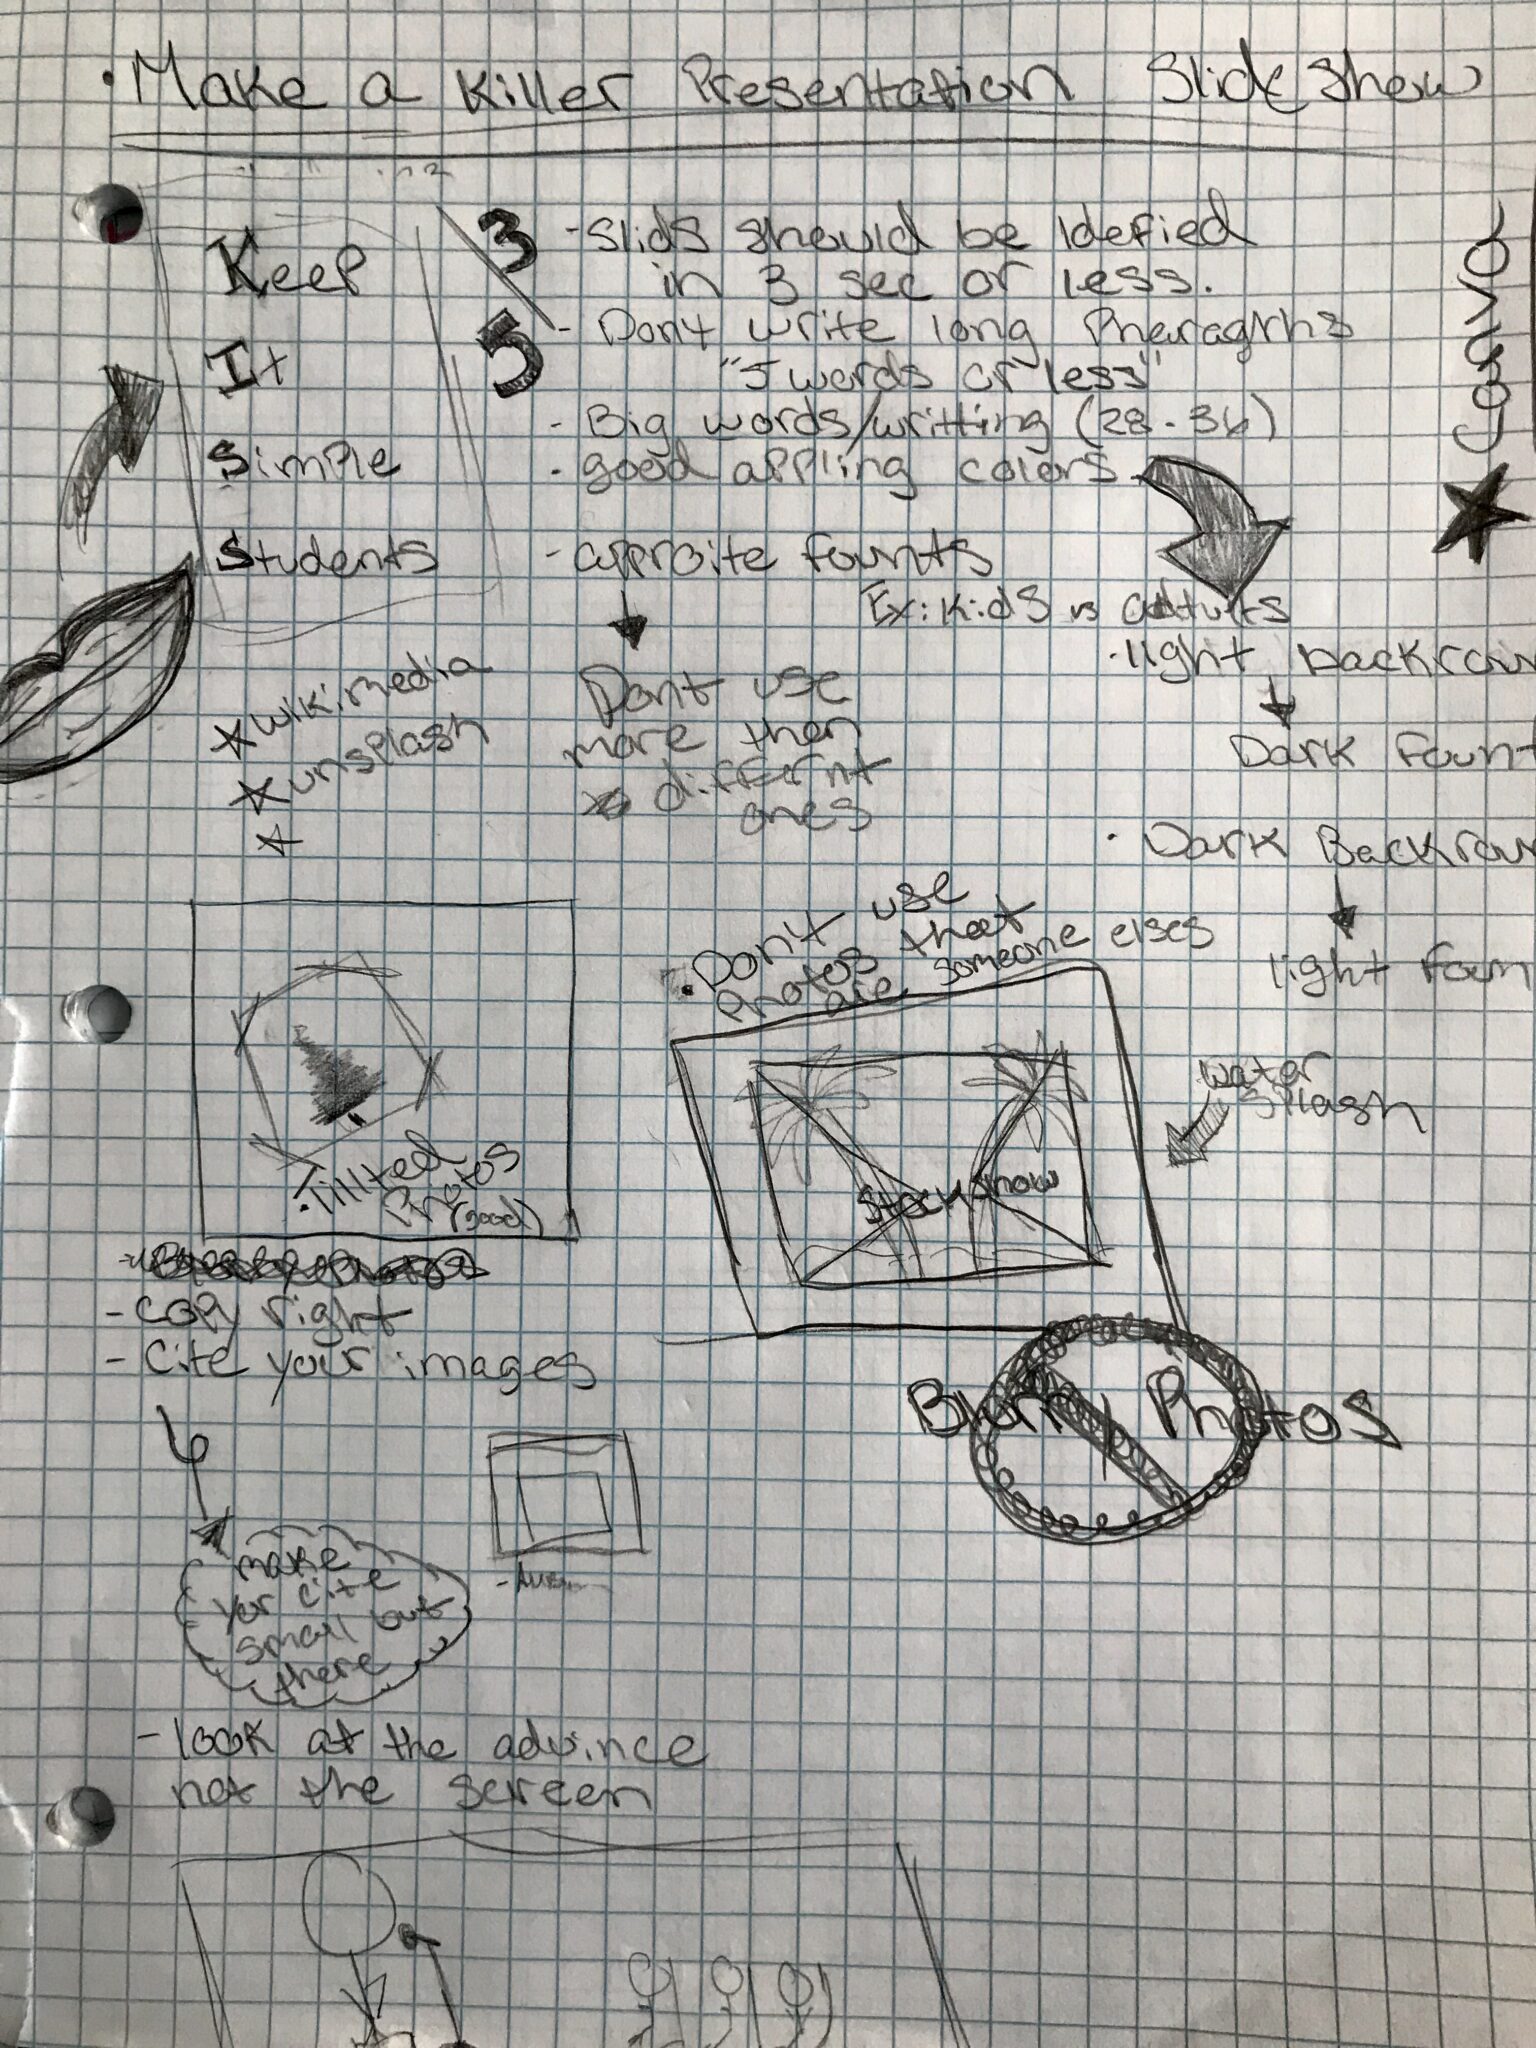 ·Make a Killer Presentation Slide Show
Keep
It
Simple
Students
3
5
-Slids should be Idefied
in 3 sec or less.
- Don't write long Pharagrhs
"5 words or less"
- Big words/writting (28-36)
- good appling colors
- approite founts
Ex: Kids vs
Dont use
more then
differnt
ones
Canva
·light backrou
Dark Fount
· Dark Backrou
light Foun
wikimedia
unsplash
·Don't use
Photos that
are someone elses
water
splash
Stock Snow
·Tillted
Photos
(good)
- Copy right
- Cite your images
Blurry Photos
make
yor cite
small but
there
- look at the advince
not the screen